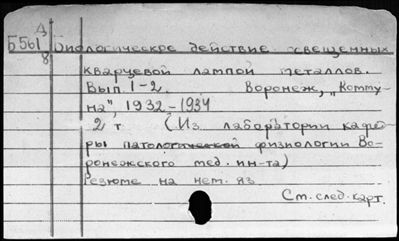 А
Б561 Биологическое действие освещенных
8
кварцевой лампой металлов.
Вып. 1-2. Воронеж, „Комму
на", 1932-1934
2 т (Из лаборатории кафед
ры патологической физиологии Во-
ронежского мед. ин-та)
Резюме на нем. яз
См. след. карт.